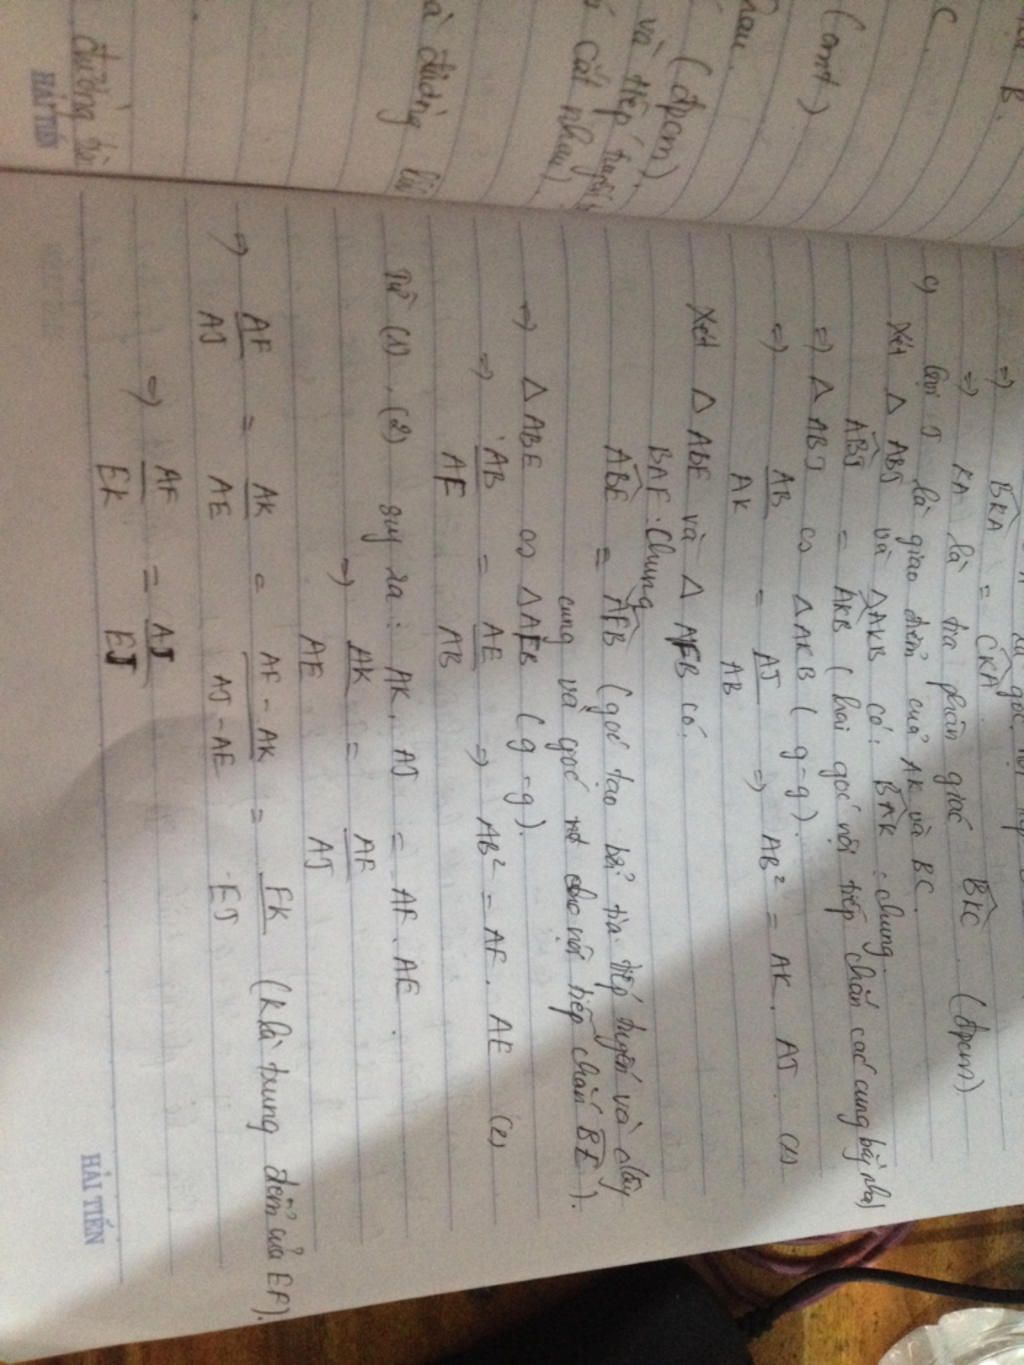 B.
C.
(cmt)
nhau.
(đpcm).
và tiếp tuyến
cắt nhau)
là đường
đường
HẢI TIẾN
góc nội tiếp
=> BKA = CKA
=> KA là tia phân giác BKC. (đpcm)
c) Gọi J là giao điểm của AK và BC.
Xét Δ ABJ và ΔAKB có: BAK : chung.
ABJ = AKB (hai góc nội tiếp chắn các cung bằng nhau)
=> Δ ABJ ∽ ΔAKB (g-g).
=> AB/AK = AJ/AB => AB² = AK. AJ. (1)
Xét Δ ABE và Δ AFB có:
BAF: chung
ABE = AFB (góc tạo bởi tia tiếp tuyến và dây
cung và góc nội tiếp chắn BE).
=> Δ ABE ∽ ΔAFB (g-g).
=> AB/AF = AE/AB => AB² = AF. AE (2)
Từ (1), (2) suy ra: AK. AJ = AF. AE.
=> AK/AE = AF/AJ
=> AF/AJ = AK/AE = AF - AK/AJ - AE = FK/EJ (K là trung điểm của EF).
=> AF/EK = AJ/EJ
HẢI TIẾN